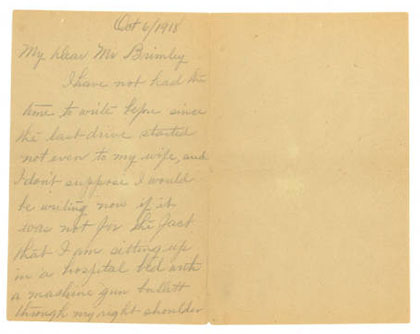 Oct 6/1918
My Dear Mr Brimley
I have not had the
time to write before since
the last drive started
not even to my wife, and
I don't suppose I would
be writing now if it
was not for the fact
that I am sitting up
in a hospital bed with
a machine gun bullett
through my right shoulder